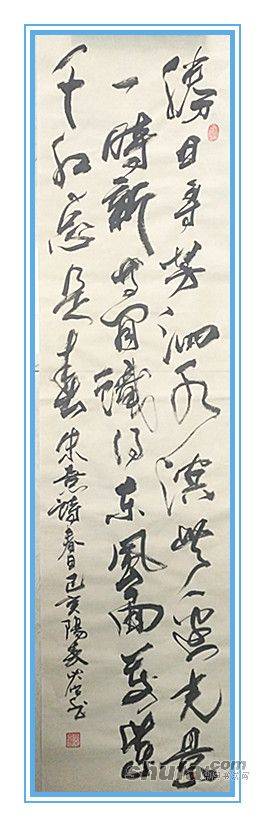 勝日尋芳泗水濱無邊光景
一時新等閒識得東風面萬紫
千紅總是春朱熹詩春日己亥陽夏